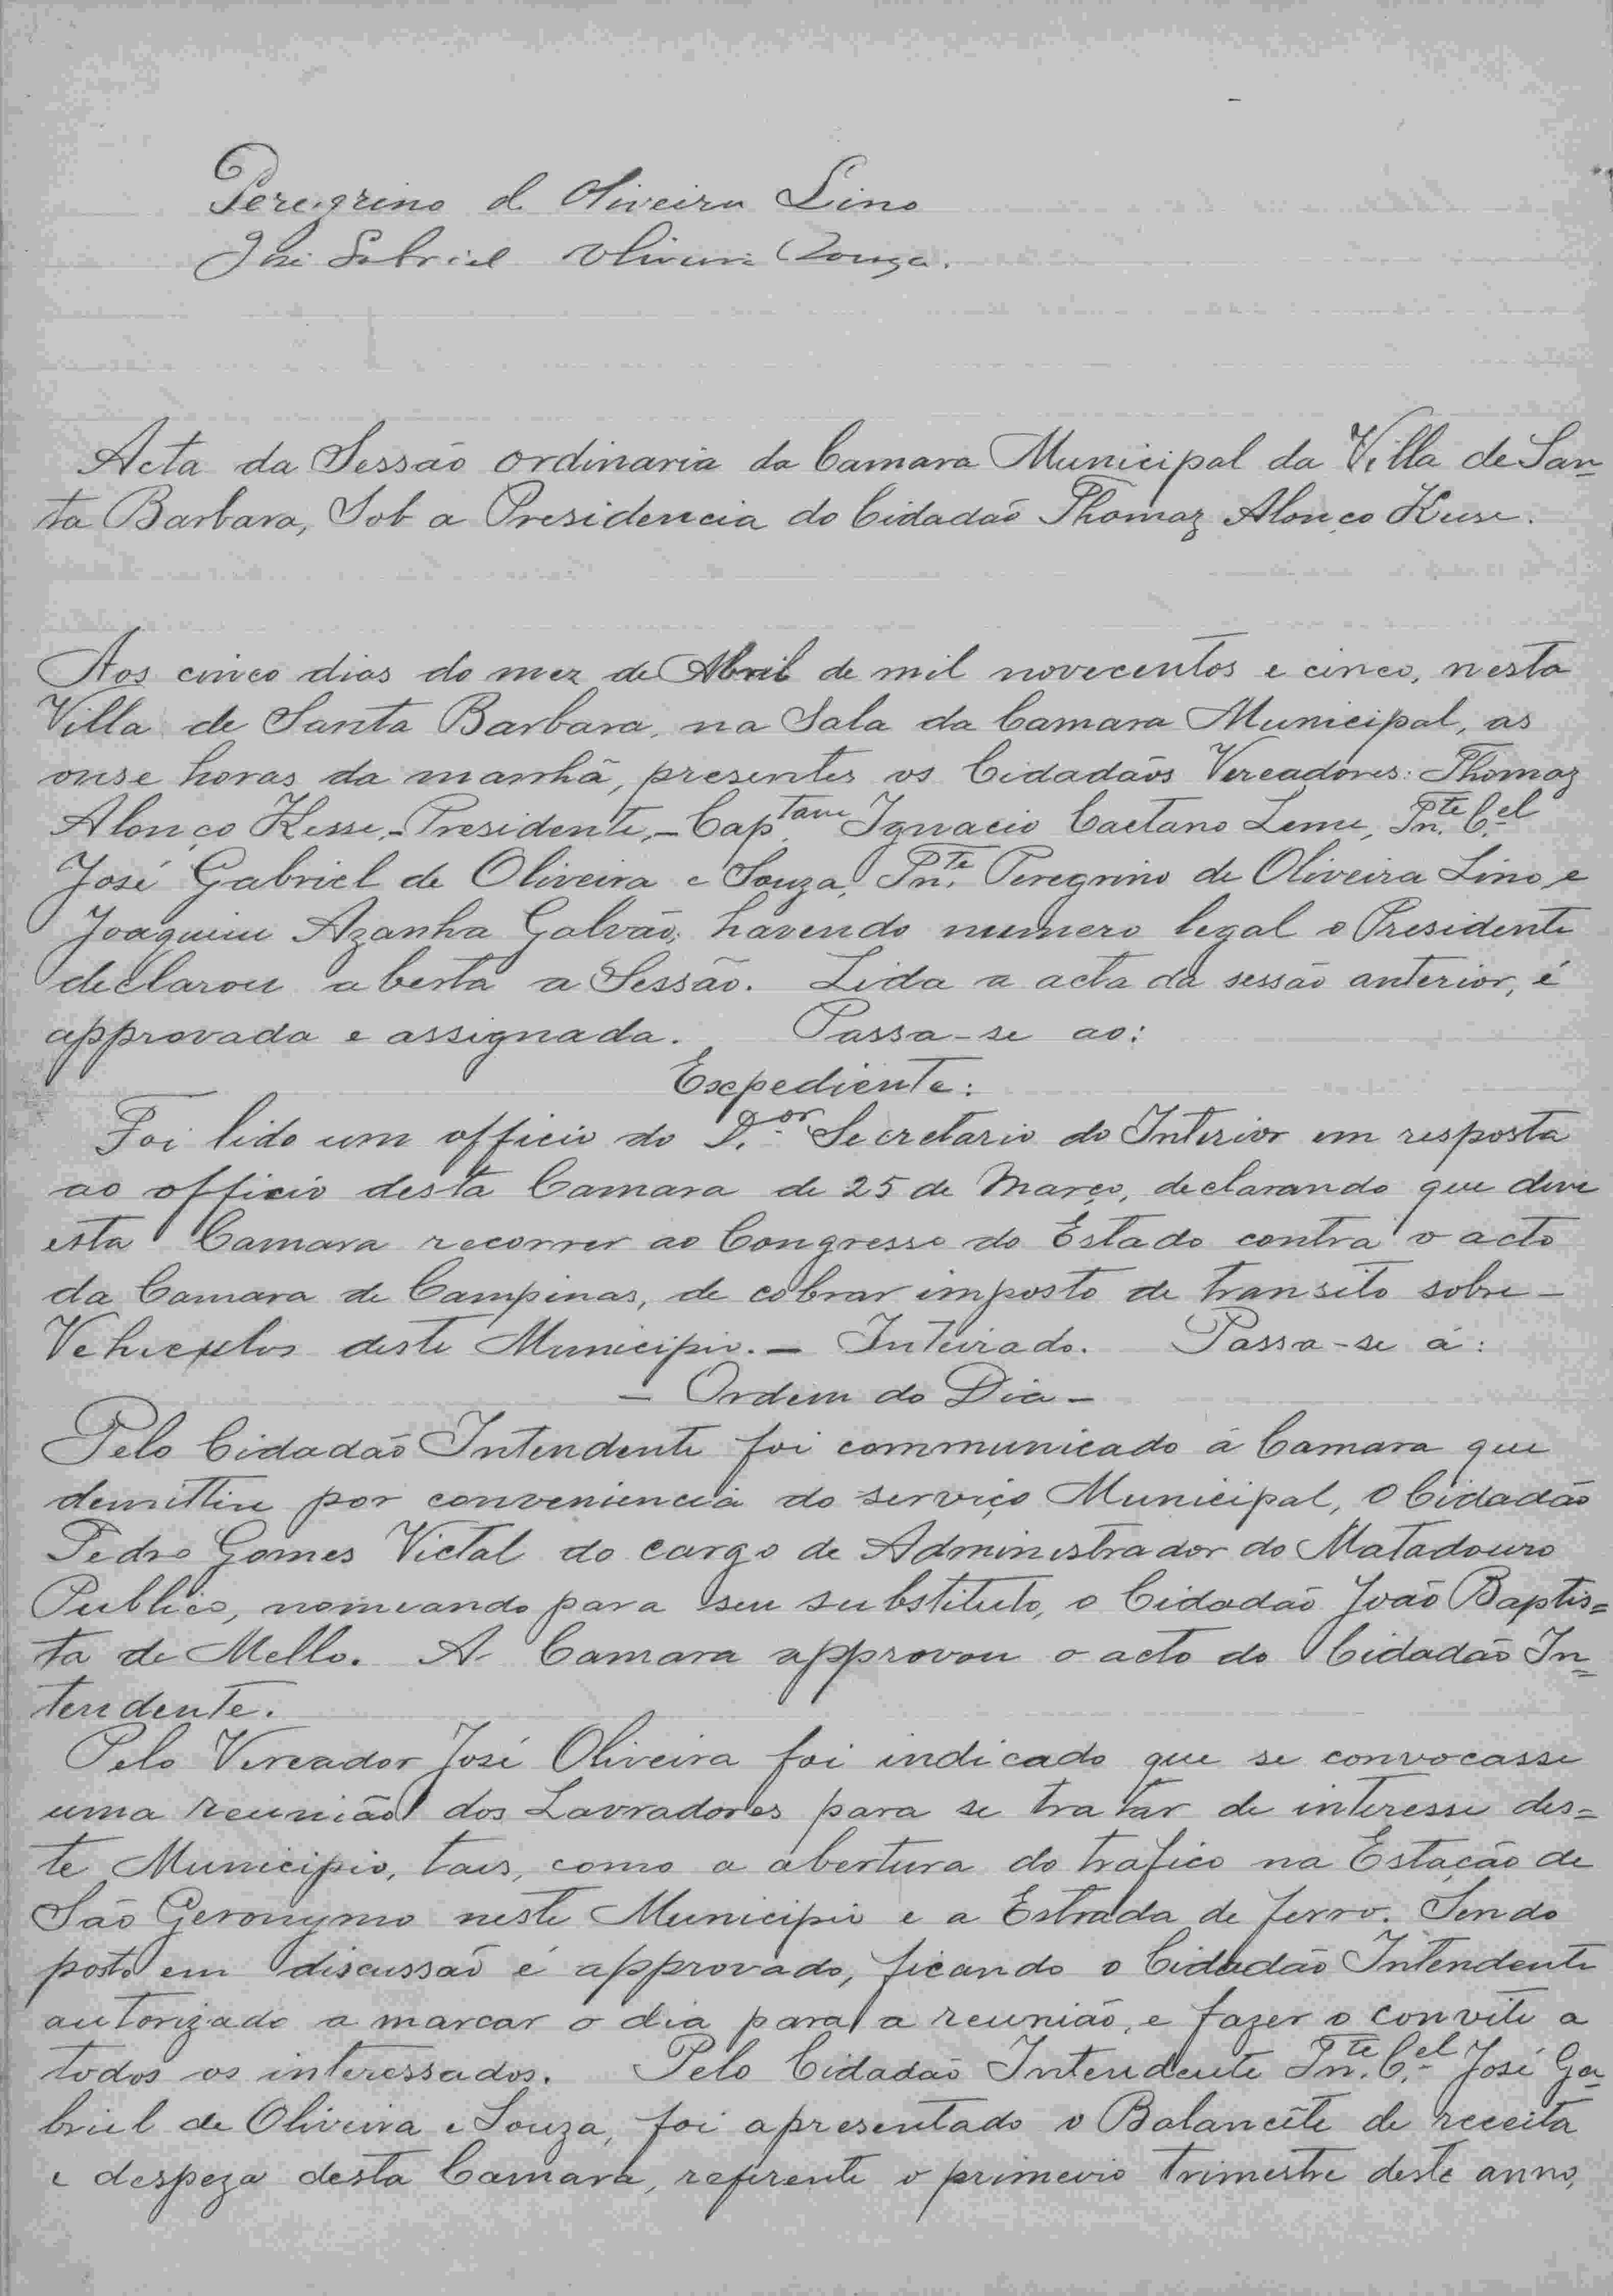 Peregrino d Oliveira Lino
José Gabriel Oliveira Souza.
Acta da Sessão ordinaria da Camara Municipal da Villa de San-
ta Barbara, Sob a Presidencia do Cidadão Thomaz Alonço Keese.
Aos cinco dias do mez de Abril de mil novecentos e cinco, nesta
Villa de Santa Barbara, na Sala da Camara Municipal, as
onse horas da manhã, presentes os Cidadãos Vereadores: Thomaz
Alonço Kesse,-Presidente,-Cap.tam Ignacio Caetano Leme, Tn.te C.el
José Gabriel de Oliveira e Souza, Tn.te Peregrino de Oliveira Lino e
Joaquim Azanha Galvão, havendo numero legal o Presidente
declarou aberta a Sessão. Lida a acta da sessão anterior, é
approvada e assignada. Passa-se ao:
Expediente:
Foi lido um officio do D.or Secretario do Interior em resposta
ao officio desta Camara de 25 de Março, declarando que deve
esta Camara recorrer ao Congresso do Estado contra o acto
da Camara de Campinas, de cobrar imposto de transito sobre-
Vehiculos deste Municipio.- Inteirado. Passa-se á:
- Ordem do Dia -
Pelo Cidadão Intendente foi communicado á Camara que
demittiu por conveniencia do serviço Municipal, o Cidadão
Pedro Gomes Victal do cargo de Administrador do Matadouro
Publico, nomeando para seu substituto, o Cidadão João Baptis=
ta de Mello. A Camara approvou o acto do Cidadão In=
tendente.
Pelo Vereador José Oliveira foi indicado que se convocasse
uma reunião dos Lavradores para se tratar de interesse des=
te Municipio, taes, como a abertura do trafico na Estação de
São Geronymo neste Municipio e a Estrada de ferro. Sendo
posto em discussão é approvado, ficando o Cidadão Intendente
autorizado a marcar o dia para a reunião, e fazer o convite a
todos os interessados. Pelo Cidadão Intendente Tn.te C.el José Ga=
briel de Oliveira e Souza, foi apresentado o Balancête de receita
e despeza desta Camara, referente o primeiro trimestre deste anno,